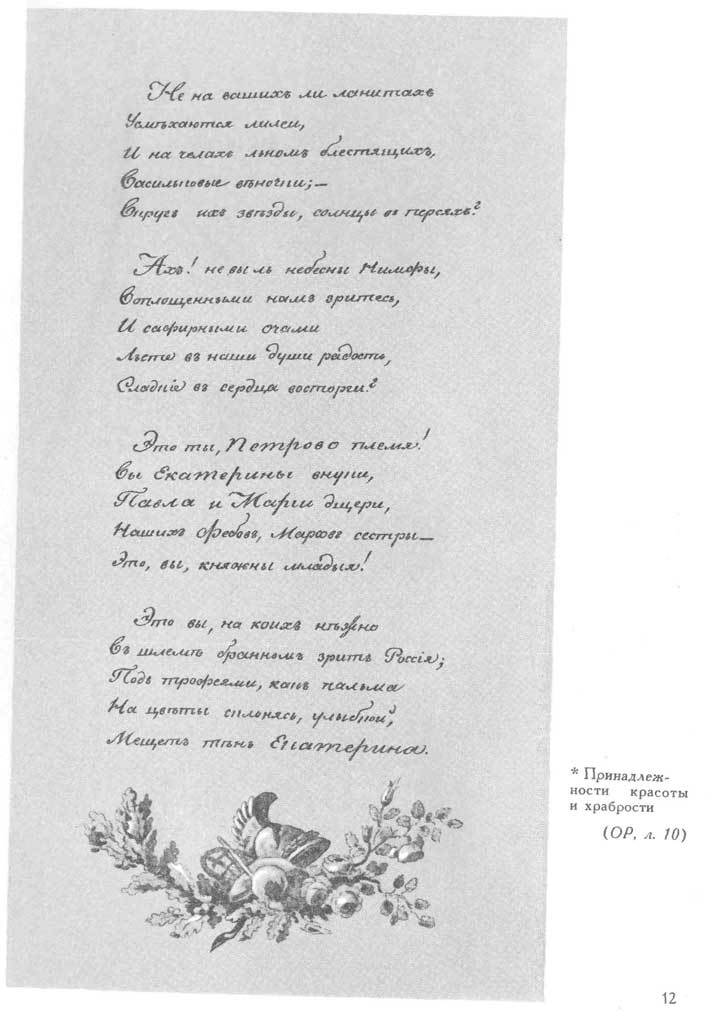 Не на вашихъ ли ланитахъ
Усмѣхаются лилеи,
И на челахъ льномъ блестящихъ,
Васильковые вѣночки;—
Вкругъ ихъ звѣзды, солнцы въ персяхъ?
Ахъ! не вы ль небесны Нимфы,
Воплощенными намъ зритесь,
И сафирными очами
Льете въ наши души радость,
Сладкіе въ сердца восторги?
Это ты, Петрово племя!
Вы Екатерины внуки,
Павла и Маріи дщери,
Нашихъ Фебовъ, Марсовъ сестры—
Это, вы, княжны младыя!
Это вы, на коихъ нѣжно
Въ шлемѣ бранномъ зритъ Россія;
Подъ трофеями, какъ пальма
На цвѣты склонясь, улыбкой,
Мещетъ тѣнь Екатерина.
* Принадлеж-
ности красоты
и храбрости
(ОР, л. 10)
12